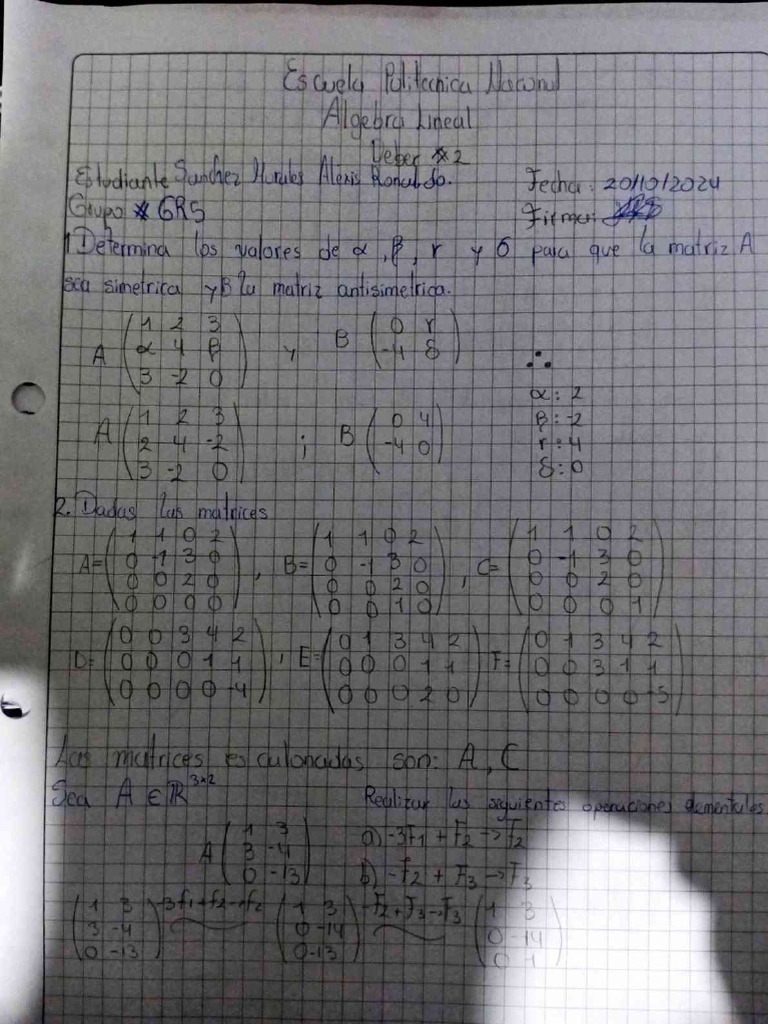 Escuela Politecnica Nacional
Algebra Lineal
Deber #2
Estudiante Sanchez Morales Alexis Ronaldo.
Fecha: 20/10/2024
Grupo # GR5
Firma:
1 Determina los valores de α, β, r y δ para que la matriz A
sea simetrica y B la matriz antisimetrica.
A (1 2 3
α 4 β
3 -2 0)
y
B (0 r
-4 δ)
∴
α: 2
β: -2
r: 4
δ: 0
A (1 2 3
2 4 -2
3 -2 0)
;
B (0 4
-4 0)
2. Dadas las matrices
A= (1 1 0 2
0 -1 3 0
0 0 2 0
0 0 0 0)
, B= (1 1 0 2
0 -1 3 0
0 0 2 0
0 0 1 0)
, C= (1 1 0 2
0 -1 3 0
0 0 2 0
0 0 0 1)
D= (0 0 3 4 2
0 0 0 1 1
0 0 0 0 -4)
, E= (0 1 3 4 2
0 0 0 1 1
0 0 0 2 0)
F= (0 1 3 4 2
0 0 3 1 1
0 0 0 0 -5)
Las matrices esculonadas son: A, C
Sea A ∈ ℝ^3×2
Realizar las siguientes operaciones elementales
A (1 3
3 -4
0 -13)
a) -3F1 + F2 → F2
b) -F2 + F3 → F3
(1 3
3 -4
0 -13)
-3f1+f2→f2
(1 3
0 -14
0 -13)
-F2+F3→F3
(1 3
0 -14
0 1)